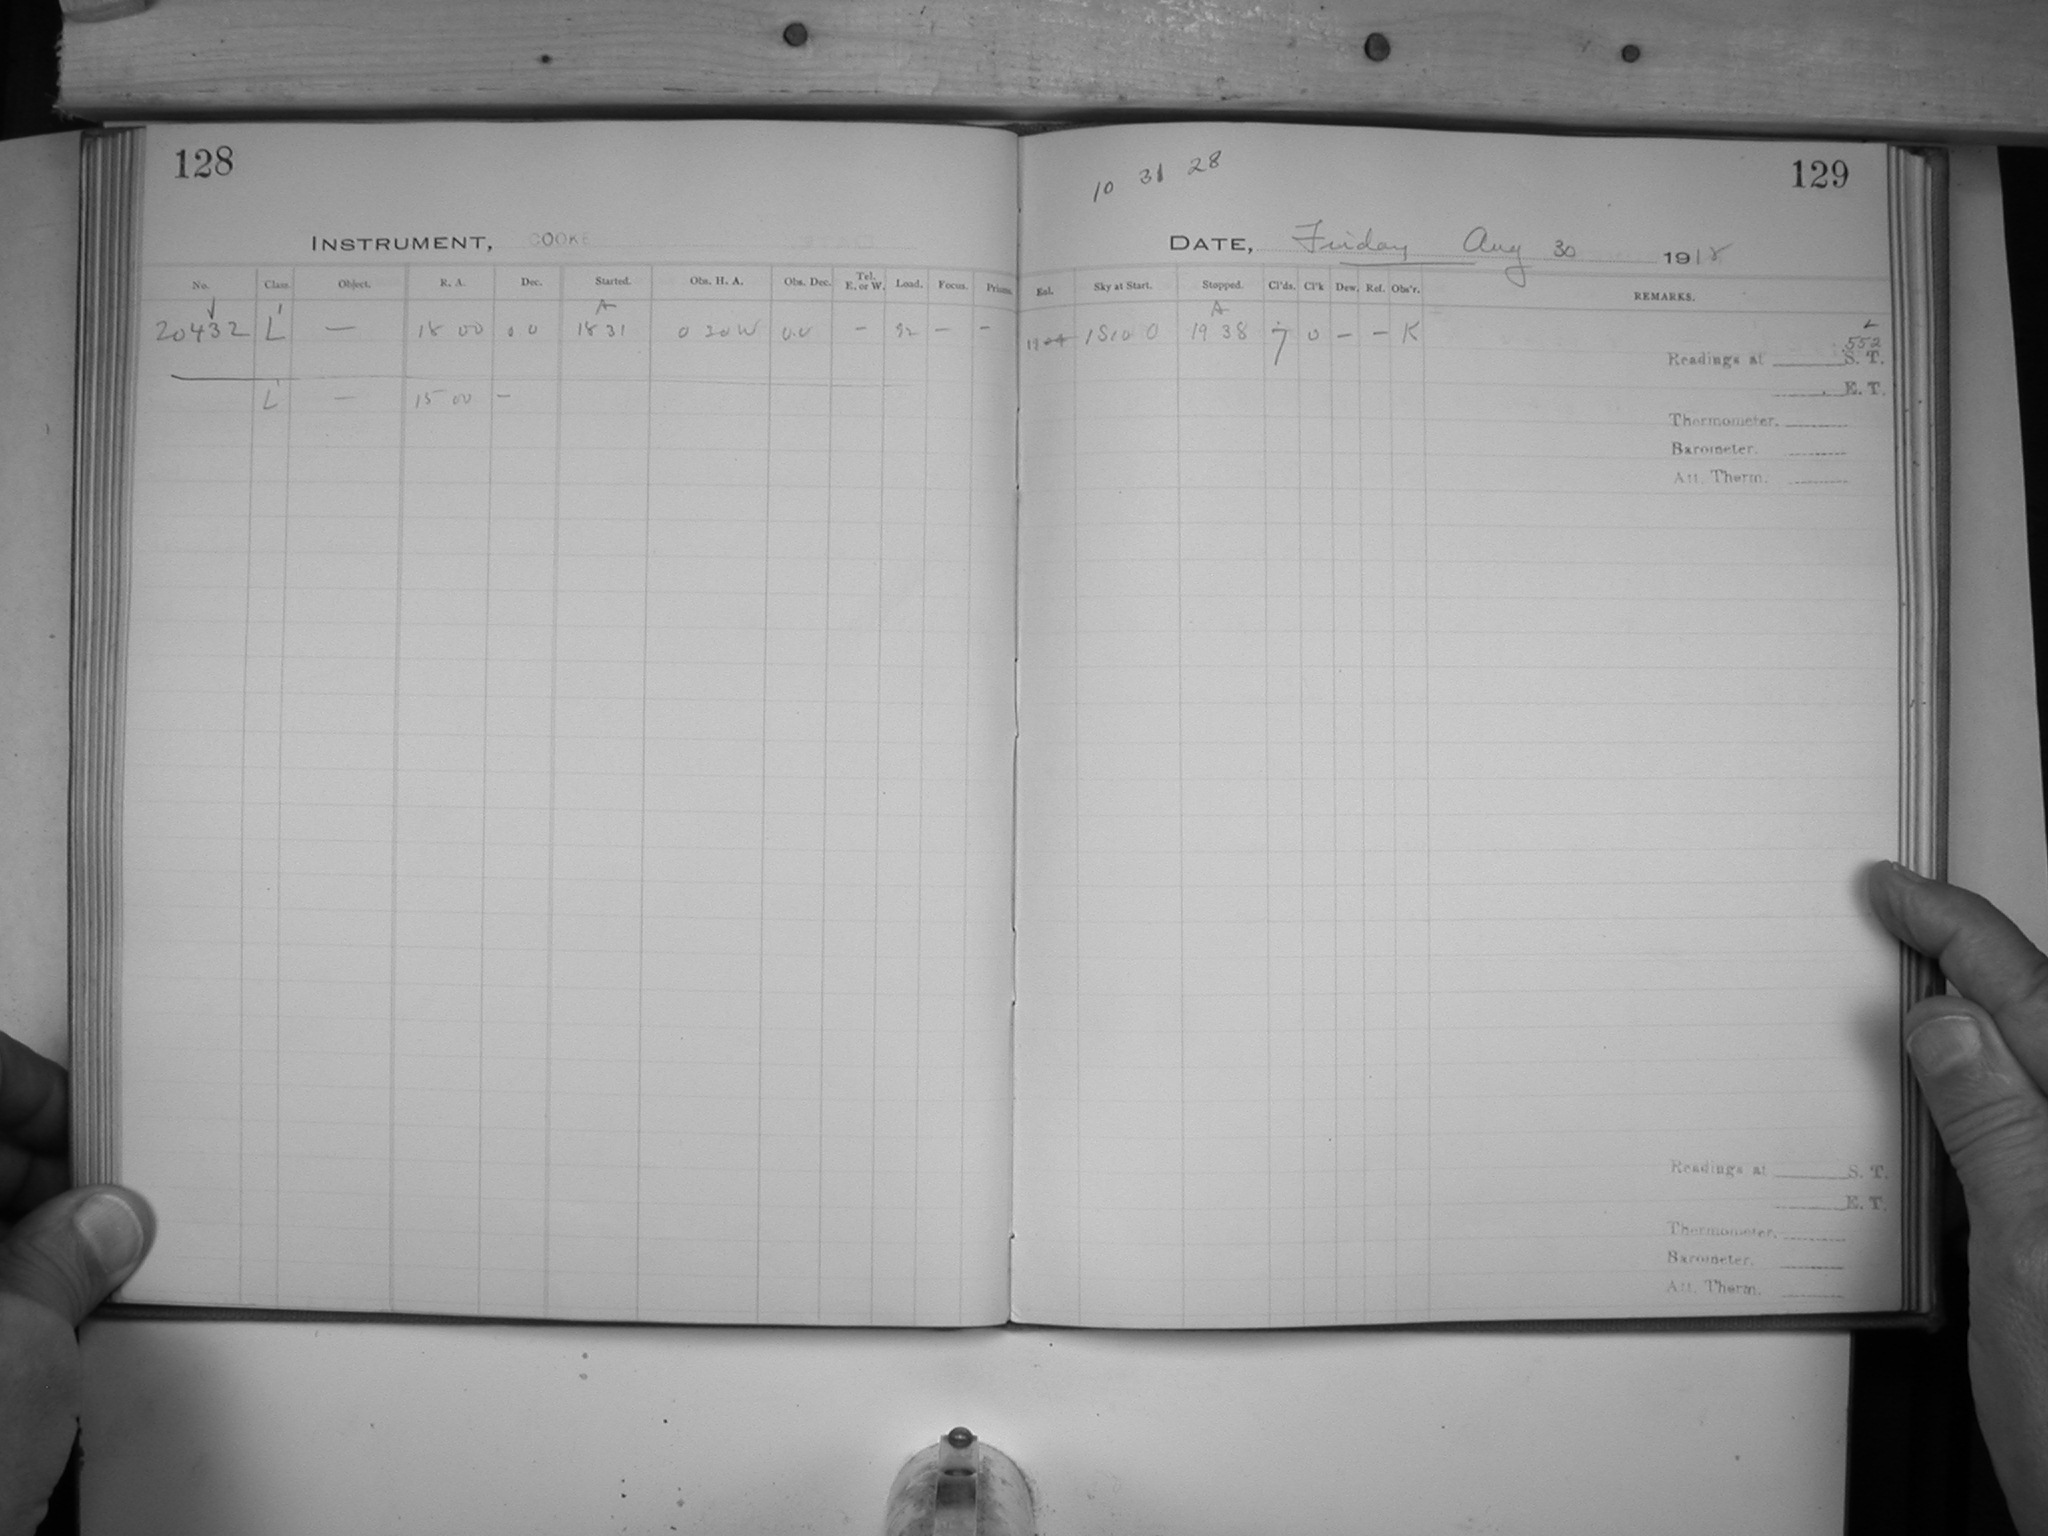 128
INSTRUMENT, COOKE
No. Class. Object. R. A. Dec. Started. Obs. H. A. Obs. Dec. Tel. E. or W. Load. Focus. Prisms.
A
20432 L — 18 00 00 18 31 0 30 W 0.0 – 52 – –
L — 15 00 –
10 31 28
129
DATE, Friday Aug 30 1918
Eol. Sky at Start. Stopped. Cl'ds. Cl'k Dew. Ref. Obs'r. REMARKS.
A
19 38 7 0 – – K
552
Readings at S. T.
E. T.
Thermometer.
Barometer.
Att. Therm.
Readings at S. T.
E. T.
Thermometer.
Barometer.
Att. Therm.